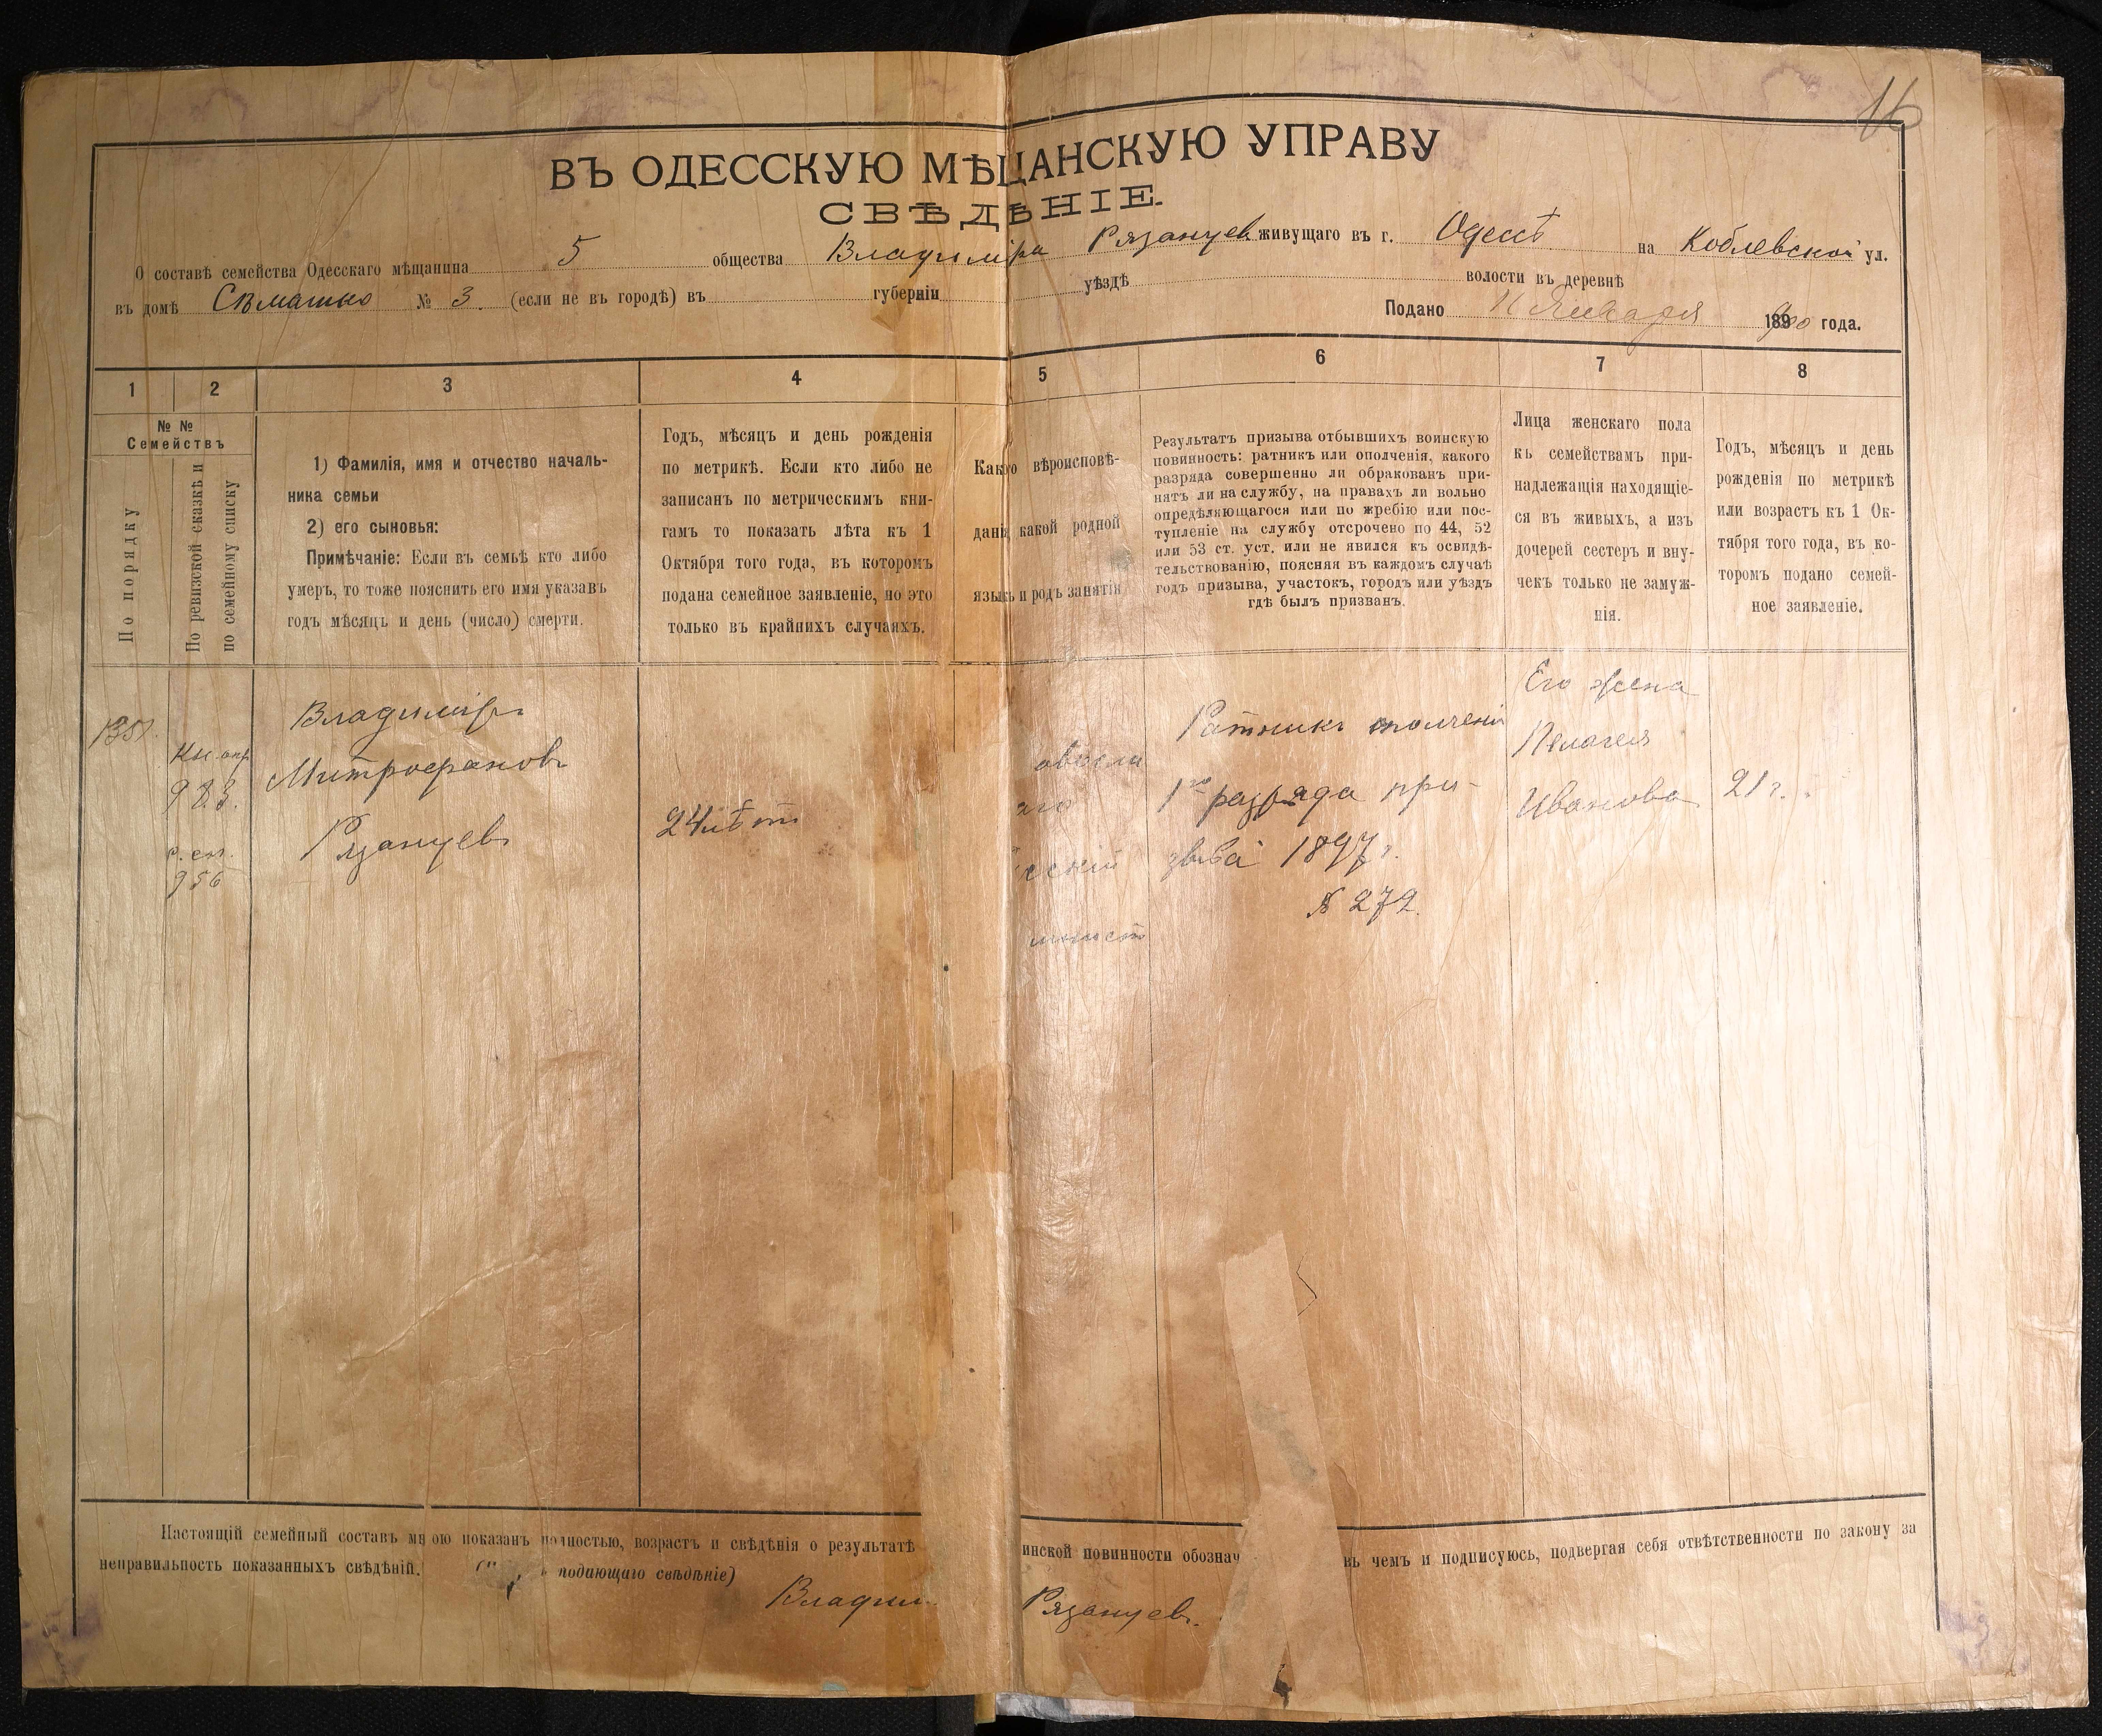 16
ВЪ ОДЕССКУЮ МѢЩАНСКУЮ УПРАВУ
СВѢДѢНІЕ.
О составѣ семейства Одесскаго мѣщанина 5 общества Владиміра Рязанцев живущаго въ г. Одессѣ на Коблевской ул.
въ домѣ № 3. (если не въ городѣ) въ губерніи уѣздѣ волости въ деревнѣ
Подано 11 Января 1900 года.
1 2 3 4 5 6 7 8
№ №
Семействъ
По порядку
По ревизской сказкѣ и
по семейному списку
1) Фамилія, имя и отчество началь-
ника семьи
2) его сыновья:
Примѣчаніе: Если въ семьѣ кто либо
умеръ, то тоже пояснить его имя указавъ
годъ мѣсяцъ и день (число) смерти.
Годъ, мѣсяцъ и день рожденія
по метрикѣ. Если кто либо не
записанъ по метрическимъ кни-
гамъ то показать лѣта къ 1
Октября того года, въ которомъ
подана семейное заявленіе, но это
только въ крайнихъ случаяхъ.
Какого вѣроисповѣ-
данія какой родной
языкъ и родъ занятія
Результатъ призыва отбывшихъ воинскую
повинность: ратникъ или ополченія, какого
разряда совершенно ли обракованъ при-
нятъ ли на службу, на правахъ ли вольно
опредѣляющагося или по жребію или пос-
тупленіе на службу отсрочено по 44, 52
или 53 ст. уст. или не явился къ освидѣ-
тельствованію, поясняя въ каждомъ случаѣ
годъ призыва, участокъ, городъ или уѣздъ
гдѣ былъ призванъ.
Лица женскаго пола
къ семействамъ при-
надлежащія находящіе-
ся въ живыхъ, а изъ
дочерей сестеръ и вну-
чекъ только не замуж-
нія.
Годъ, мѣсяцъ и день
рожденія по метрикѣ
или возрастъ къ 1 Ок-
тября того года, въ ко-
торомъ подано семей-
ное заявленіе.
983.
956
Владиміръ
Митрофановъ
Рязанцевъ
24 лѣтъ
Ратникъ ополченія
1го разряда при-
зыва 1897 г.
№ 272.
Его жена
Пелагея
Иванова
21 г.
Настоящій семейный составъ мною показанъ полностью, возрастъ и свѣдѣнія о результатѣ инской повинности обознач въ чемъ и подписуюсь, подвергая себя отвѣтственности по закону за
неправильность показанныхъ свѣдѣній. подающаго свѣдѣніе)
Владим Рязанцевъ.